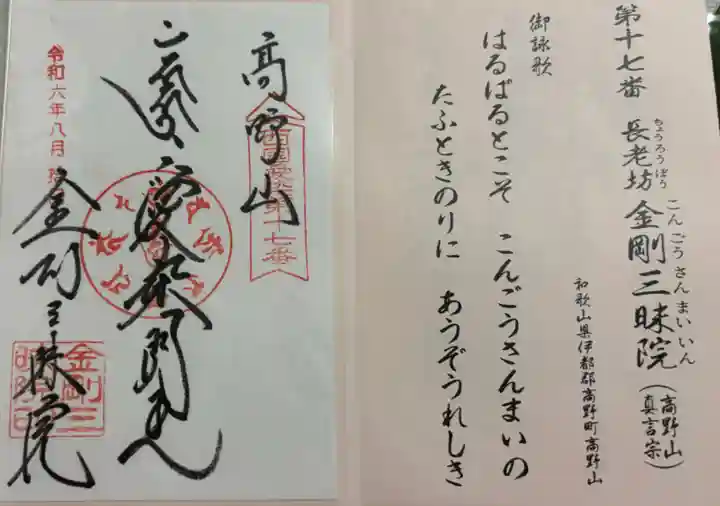 第十七番 長老坊 金剛三昧院(高野山真言宗)
ちょうろうぼう こんごうさんまいいん
和歌山県伊都郡高野町高野山
御詠歌
はるばるとこそ こんごうさんまいの
たふときのりに あうぞうれしき
高野山
西國愛染第十七番
愛染明王
金剛三昧院
金剛三
令和六年八月